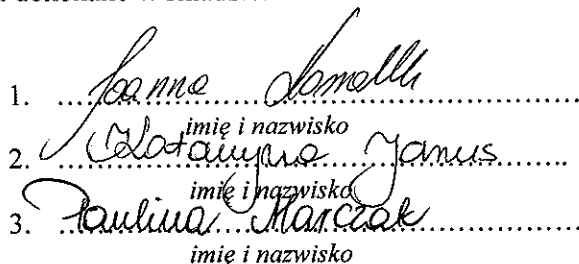 1. Joanna
imię i nazwisko
2. Katarzyna Janus
imię i nazwisko
3. Paulina Marczak
imię i nazwisko